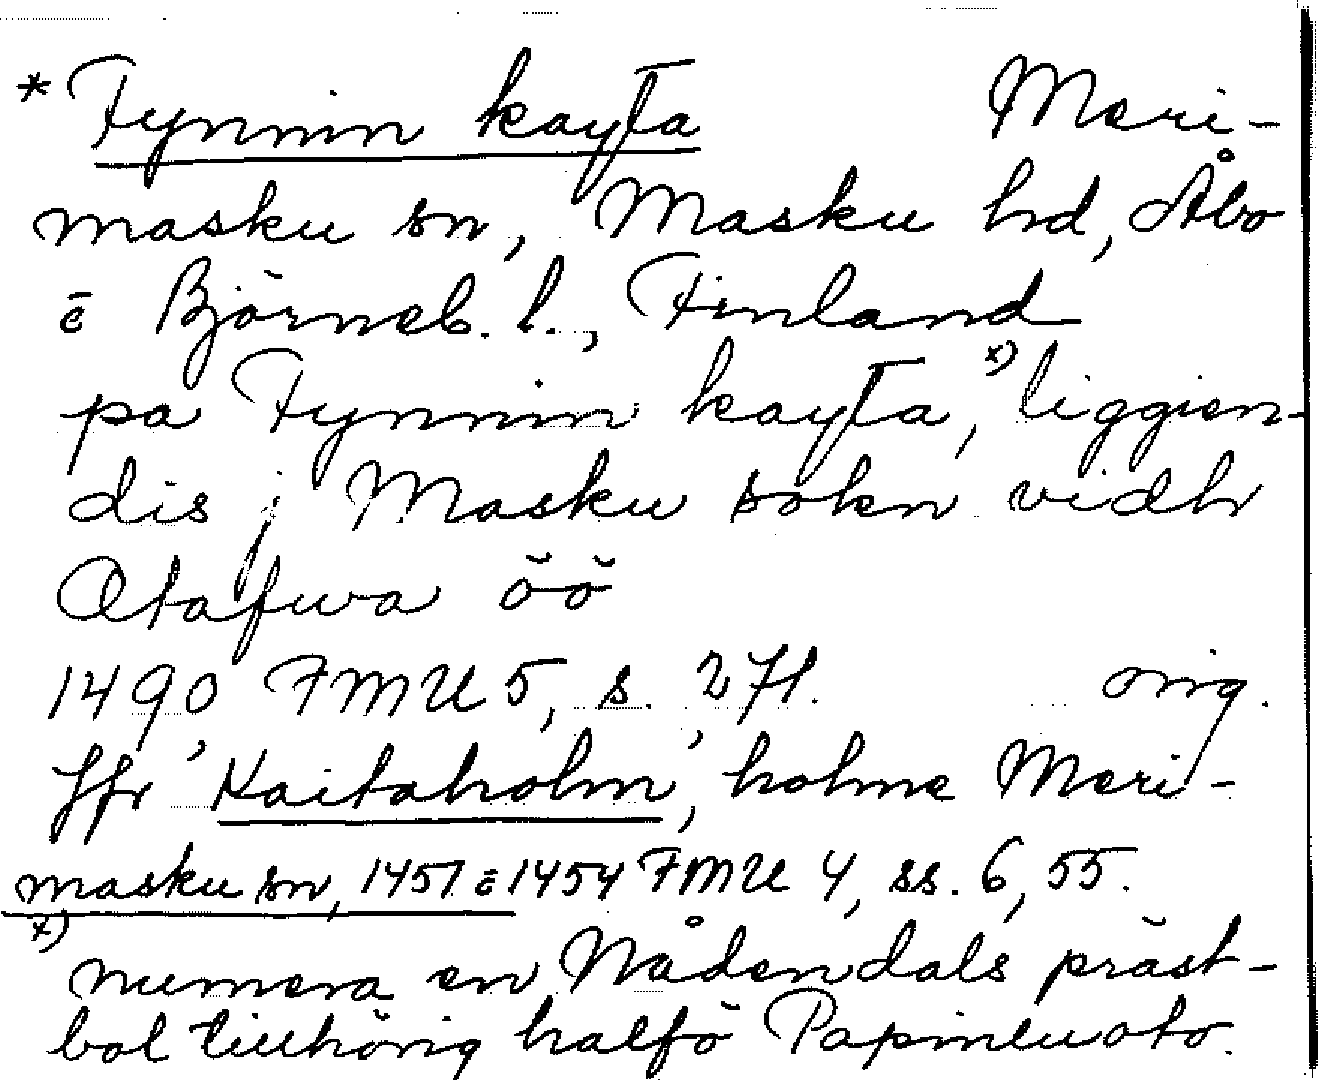 * Fynnin kayta Meri-
masku sn, Masku hd, Åbo
ē Björneb. l., Finland
pa Fynnin kayta,ˣ⁾ liggien-
dis j Masku sokn vidh
Otafwa öö
1490, FMU 5, s. 271. orig.
Jfr Kaitaholm, holme Meri-
masku sn, 1451 ē 1454 FMU 4, ss. 6, 55.
x) numera en Nådendals präst-
bol tillhörig halfö Papinluoto.